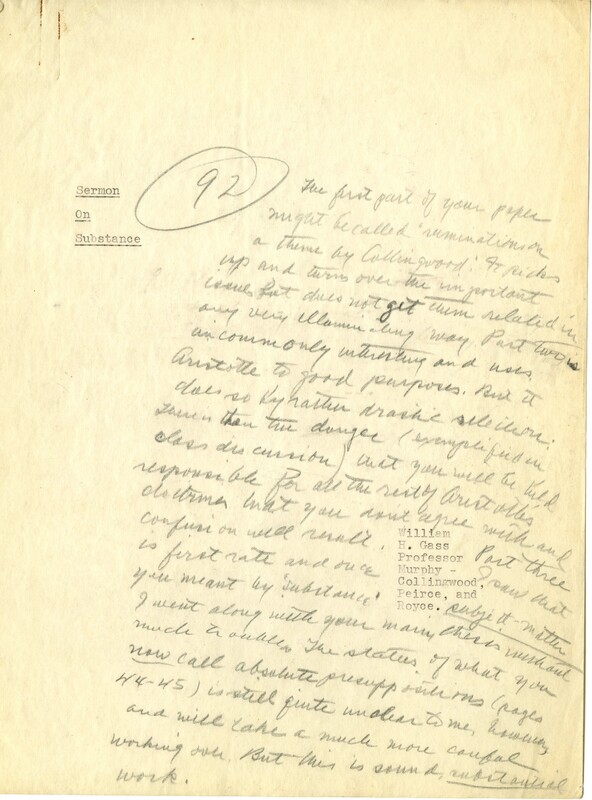 Sermon
On
Substance
92
The first part of your paper
might be called 'ruminations on
a theme by Collingwood'. It picks
up and turns over the important
issues but does not get them related in
any very illuminating way. Part two is
uncommonly interesting and uses
Aristotle to good purposes. But it
does so by rather drastic selection.
There is then the danger (exemplified in
class discussion) that you will be held
responsible for all the rest of Aristotle's
doctrines that you don't agree with and
confusion will result. Part three
is first rate and once I saw that
you meant by "substance" subject-matter
I went along with your main thesis without
much trouble. The status of what you
now call absolute presuppositions (pages
44-45) is still quite unclear to me, however,
and will take a much more careful
working over. But this is sound, substantial
work.
William
H. Gass
Professor
Murphy -
Collingwood,
Peirce, and
Royce.